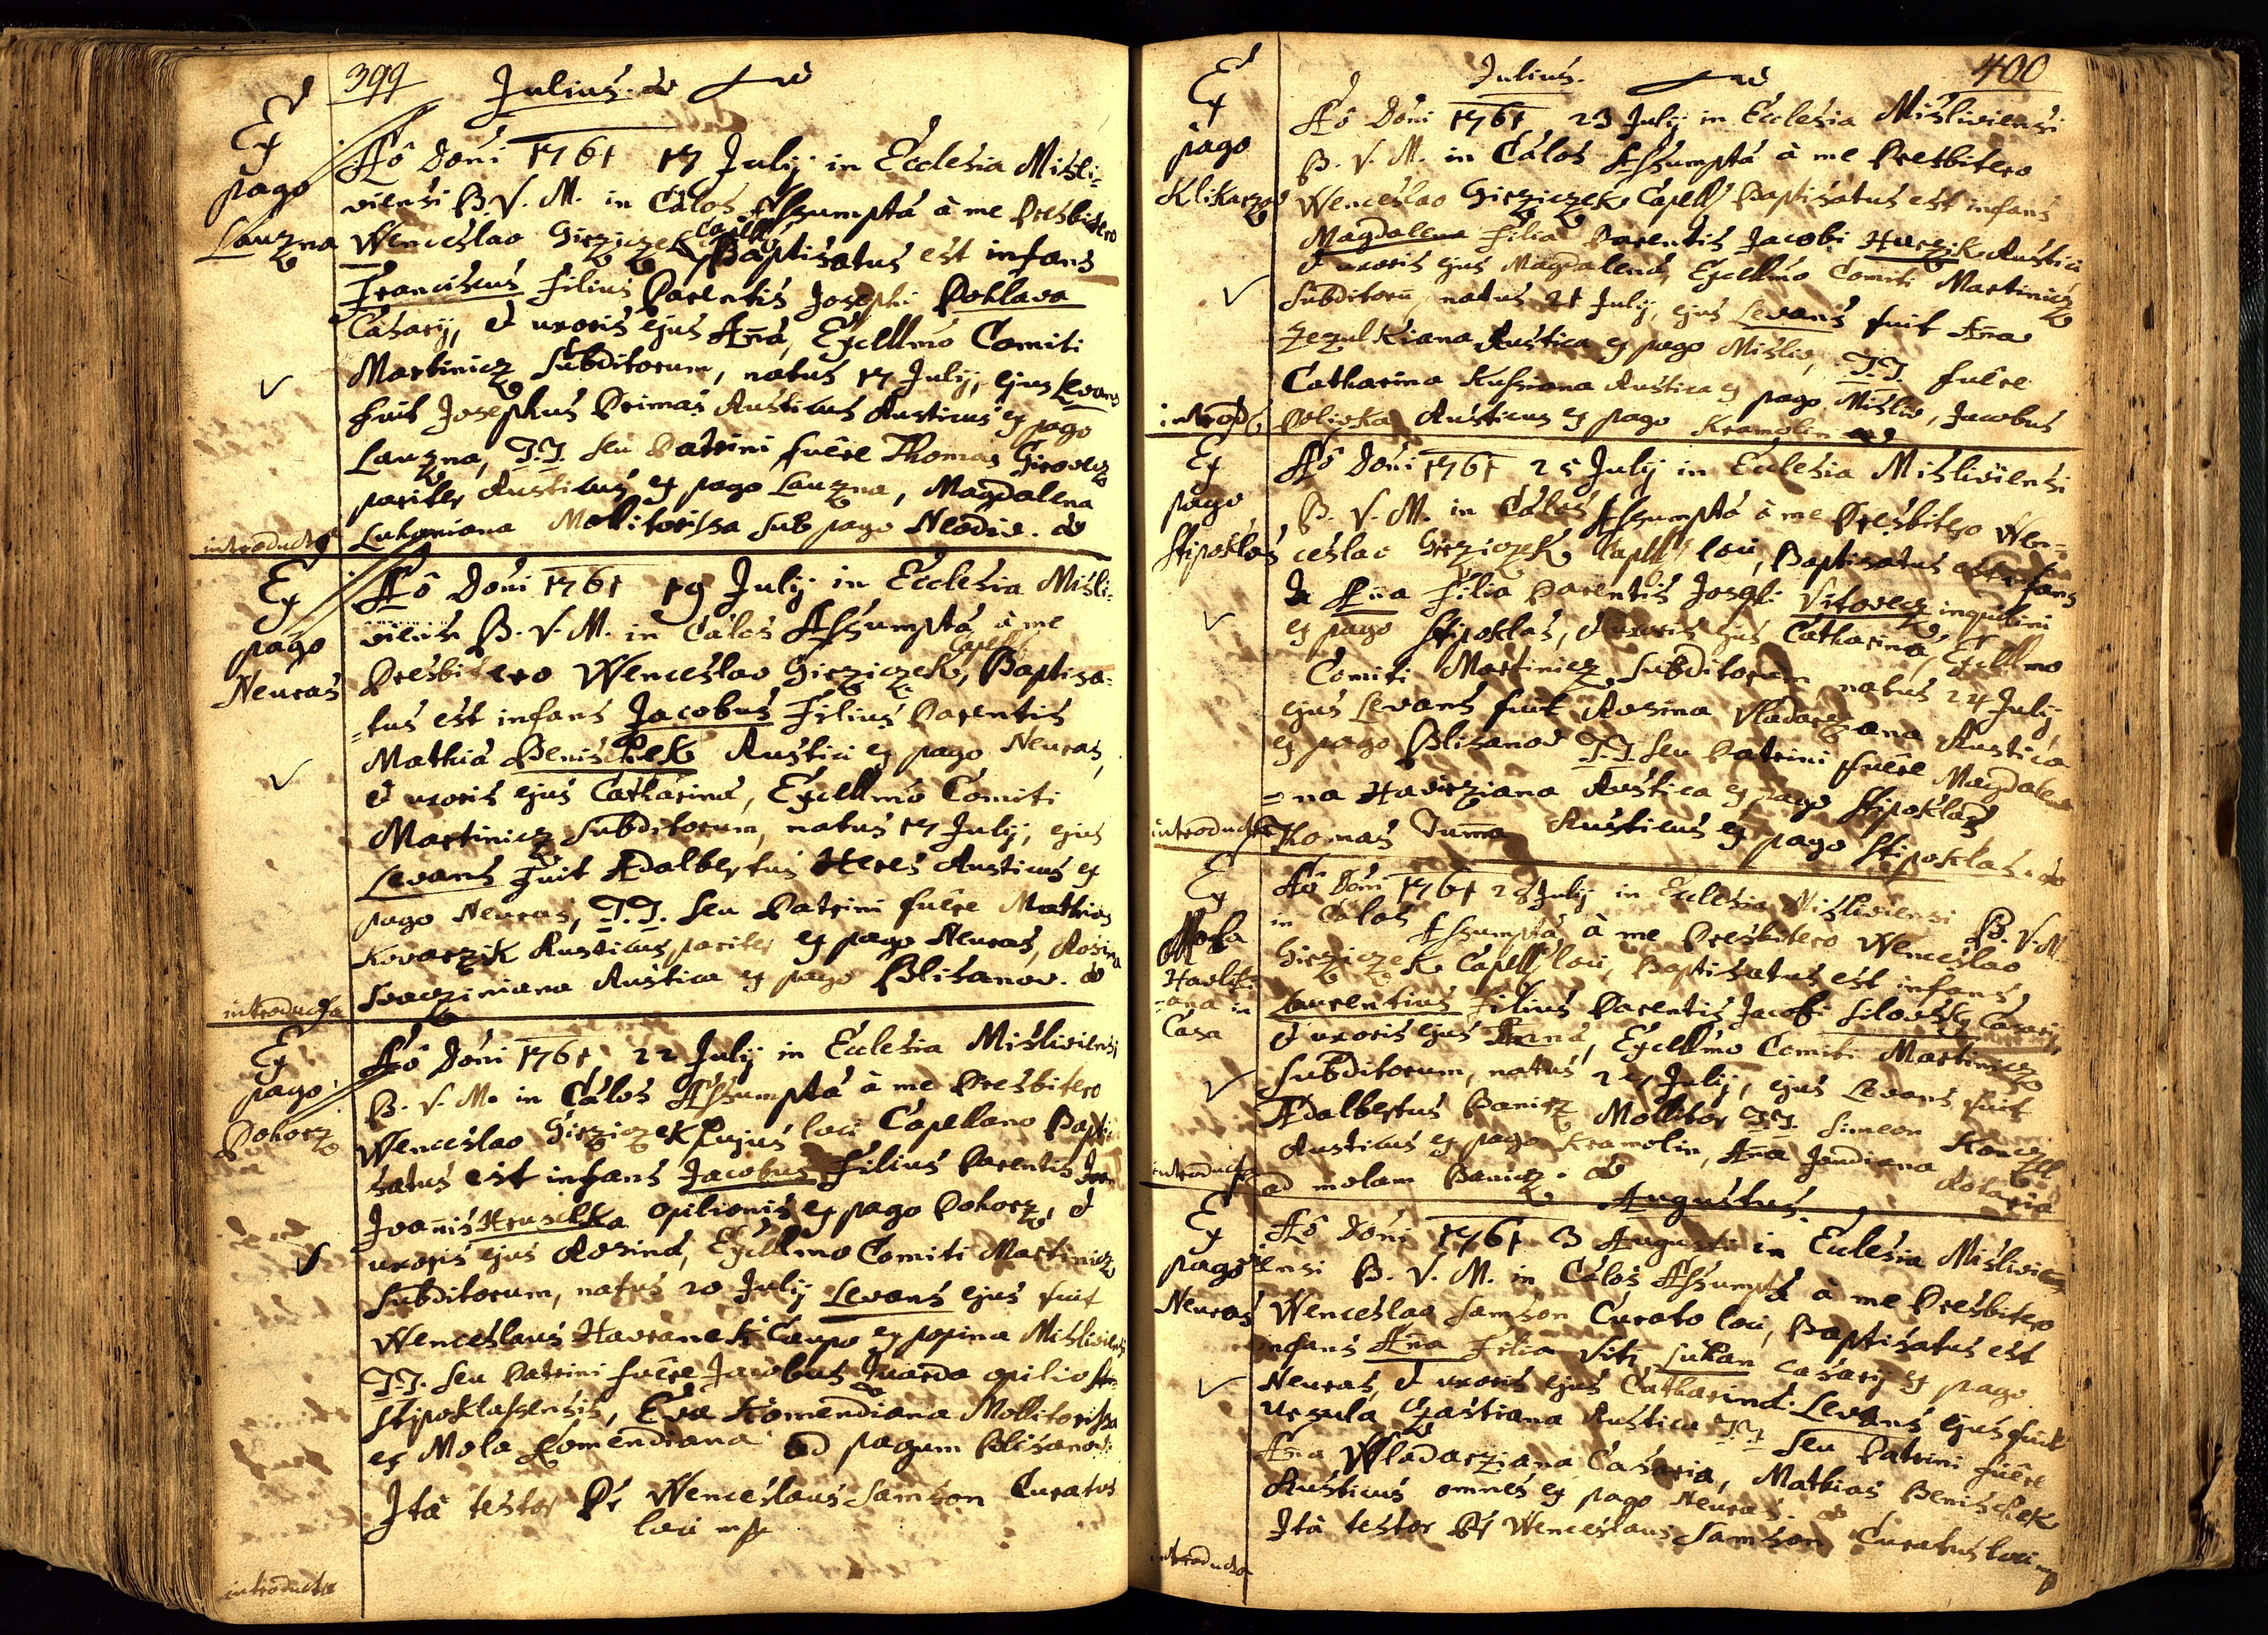 399
Julius.
Ex
pago
Lauzna
Aô Doni 1761 17 July in Ecclesia Misli=
viensi B. V. M. in Cálos Assumptá à me Presbitero
Wenceslao Girziczek Capell: Baptisatus est infans
Franciscus Filius Parentis Josephi Pohlava
Casarij, et uxoris ejus Añá, Excellmo Comiti
Martinicz Subditorum, natus 17 July, ejus Levans
fuit Josephus Primas Rusticus Rusticus ex pago
Lauzna, T.T. seu Patrini fuêre Thomas Girovecz
pariter Rusticus ex pago Lauzna, Magdalena
Mollitorissa sub pago Neodiv.
introducta
Ex
pago
Neuras
Aô Doni 1761 19 July in Ecclesia Misli=
viensi B. V. M. in Cálos Assumptá à me
Presbitero Wenceslao Girziczek Capell:, Baptisa=
=tus est infans Jacobus Filius Parentis
Mathiá Benischek Rustici ex pago Neuras,
et uxoris ejus Cathariná, Excellmô Comiti
Martinicz Subditorum, natus 17 July, ejus
Levans Fuit Adalbertus Heres Rusticus ex
pago Neuras, T.T. seu Patrini fuêre Mathias
Kovarzik Rusticus pariter ex pago Neuras, Rosina
Svacziniana Rustica ex pago Blisanov.
introducta
Ex
pago
Pohorz
Aô Doni 1761 22 July in Ecclesia Misliviensi
B. V. M. in Cálos Assumptá à me Presbitero
Wenceslao Girziczek hujus loci Capellano Bapti
satus est infans Jacobus Filius Parentis
Joañis Hruschka opilionis ex pago Pohorz, et
uxoris ejus Rosiná, Excellmo Comiti Martinicz
Subditorum, natus 20 July Levans ejus fuit
Wenceslaus Havranek Caupo ex popina Misliviensi
T.T. seu Patrini fuêre Jacobus Tuarda opilio
stipoklassensis, Eva Komendiana Mollitorissa
ex Mola Komendiana ad pagum Blisanov.
Ità testor Pr Wenceslaus Samson Curatus
loci mp
introducta
400
Julius.
Ex
pago
Klikarzov
Aô Doni 1761 23 July in Ecclesia Misliviensi
B. V. M. in Cálos Assumptá à me Presbitero
Wenceslao Girziczek Capell: Baptisatus est infans
Magdalena Filia Parentis Jacobi Hurzik Rustici
et uxoris ejus Magdalená, Excellmo Comiti Martinicz
Subditorũ, natus 21 July, ejus Levans fuit Aña
Zezulkiana Rustica ex pago Misliv, T.T. fuêre
Catharina Rustica ex pago Misliv, Jacobus
Polivka Rusticus ex pago Kramolin
introd:
Ex
pago
Stipoklas
Aô Doni 1761 25 July in Ecclesia Misliviensi
B. V. M. in Cálos Assumptá à me Presbitero Wen=
ceslao Girziczek Capell: loci, Baptisatus est infans
Aña Filia Parentis Josephi Vitovecz inquilini
ex pago Stipoklas, et uxoris ejus Catharina, Excellmo
Comiti Martinicz Subditorum natus 24 July,
ejus Levans fuit Rosina Vladarzana Rustica
ex pago Blisanov T.T. seu Patrini fuêre Magdale
=na Havirziana Rustica ex pago Stipoklas,
Thomas Duma Rusticus ex pago Stipoklas.
introducta
Ex
Mola
Havlik
=ana in
Casa
Aô Doni 1761 28 July in Ecclesia Misliviensi B. V. M.
in Cálos Assumptá à me Presbitero Wenceslao
Girziczek Capell: loci, Baptisatus est infans
Laurentius Filius Parentis Jacobi Silovsky Casarij,
et uxoris ejus Añá, Excellmo Comiti Martinicz
Subditorum, natus 27 July, ejus Levans fuit
Adalbertus Banicz Mollitor T.T. Simeon Koncz
Rusticus ex pago Kramolin, Aña Jandiana
ad molam Banicz.
introducta
Augustus.
Ex
pago
Neuras
Aô Doni 1761 3 Augusti in Ecclesia Mislivi
ensi B. V. M. in Cálos Assumptá à me Presbitero
Wenceslao Samson Curato loci, Baptisatus est
infans Aña Filia Viti Lukan casarij ex pago
Neuras, et uxoris ejus Catharina. Levans ejus fuit
Ursula Rustica T.T. seu Patrini fuêre
Aña Wladarziana Casaria, Mathias Benischek
Rusticus omnes ex pago Neuras.
Ità testor Pr Wenceslaus Samson Curatus loci mp
introducta